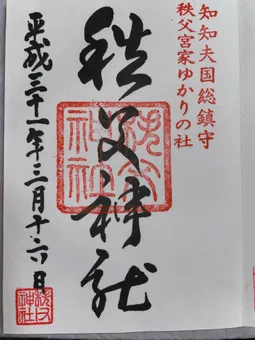 知知夫国総鎮守
秩父宮家ゆかりの社
秩父神社
平成三十一年三月十六日
秩父
神社